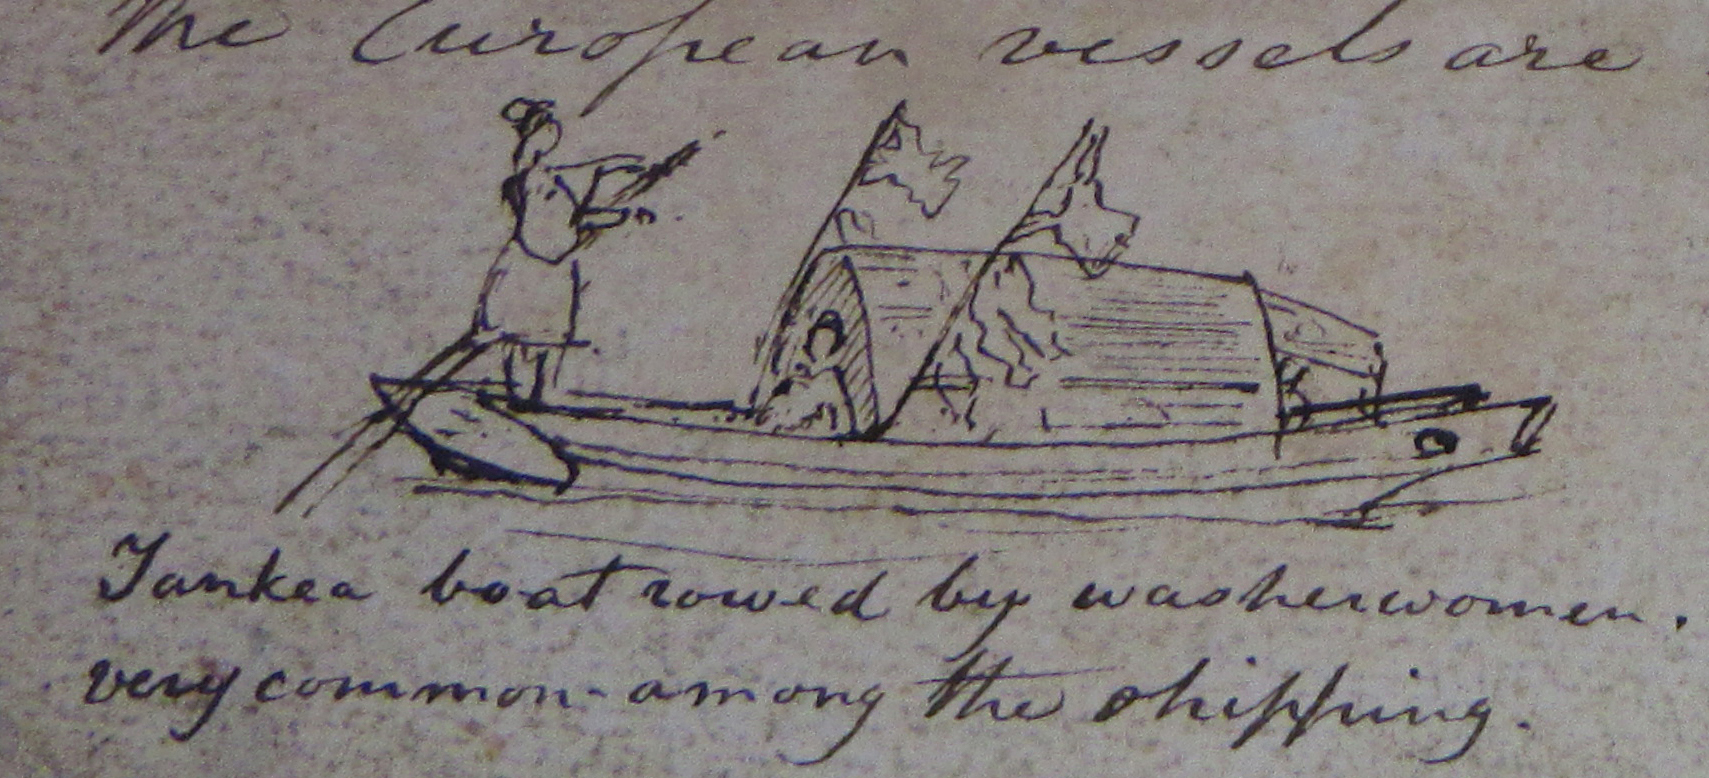 The European vessels are
Tankea boat rowed by washerwomen.
very common among the shipping.